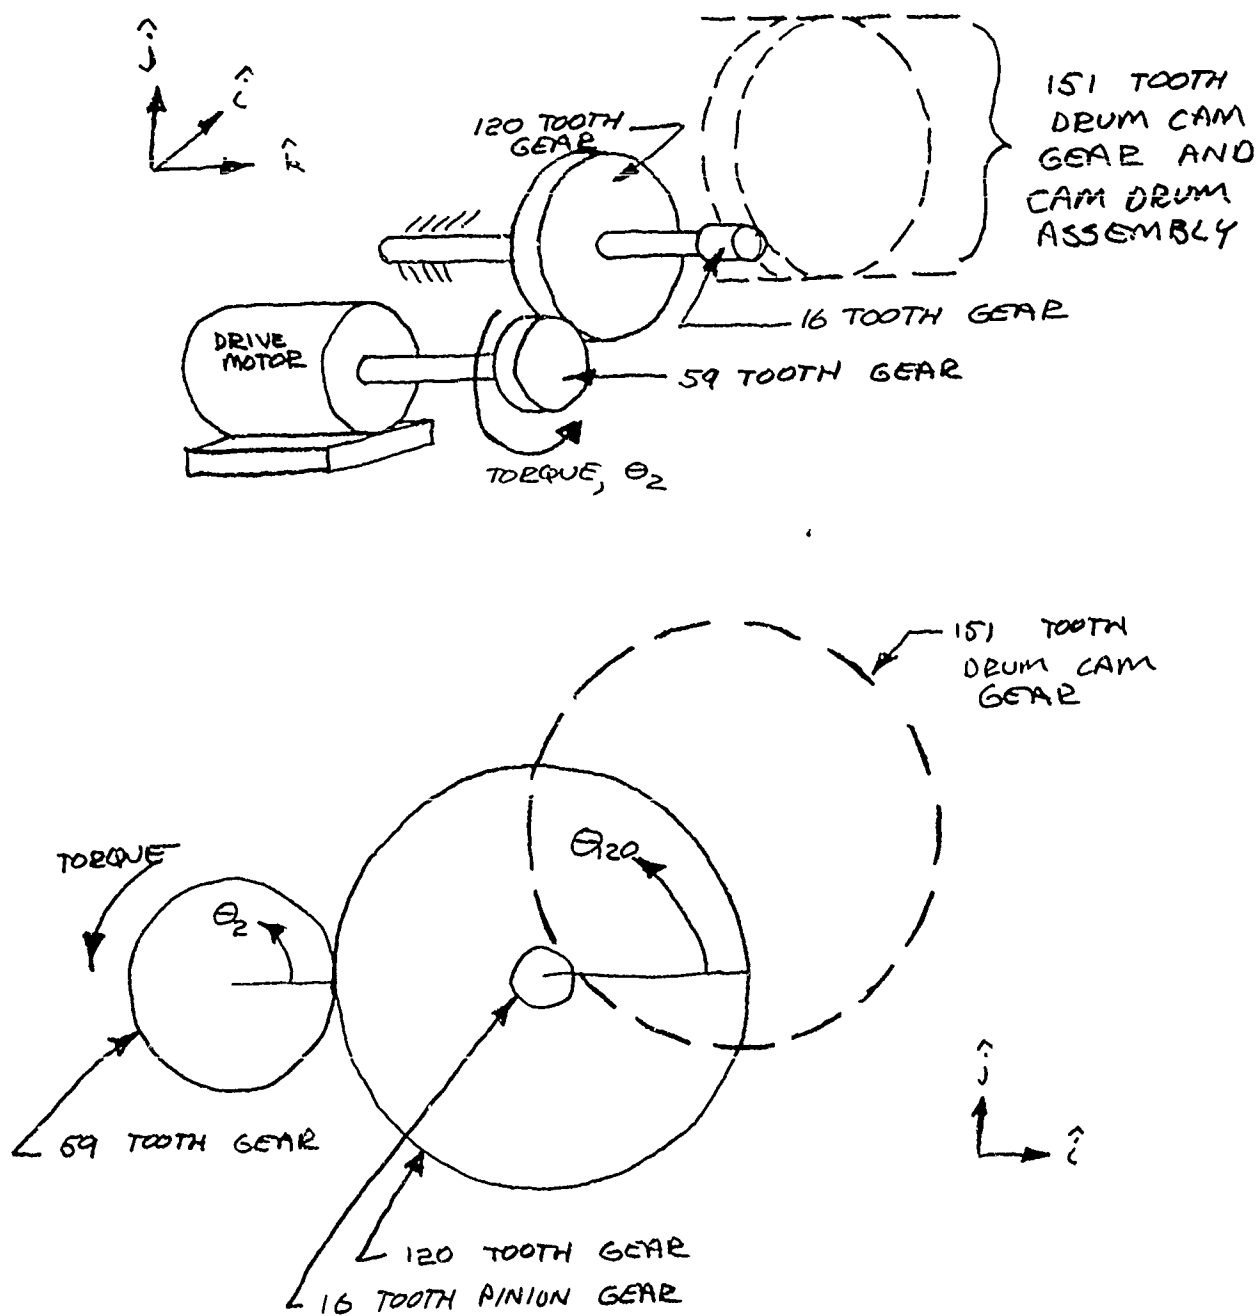 ĵ
î
k̂
120 TOOTH
GEAR
151 TOOTH
DRUM CAM
GEAR AND
CAM DRUM
ASSEMBLY
16 TOOTH GEAR
DRIVE
MOTOR
59 TOOTH GEAR
TORQUE, Θ₂
151 TOOTH
DRUM CAM
GEAR
TORQUE
Θ₂
Θ₁₂₀
59 TOOTH GEAR
ĵ
î
120 TOOTH GEAR
16 TOOTH PINION GEAR